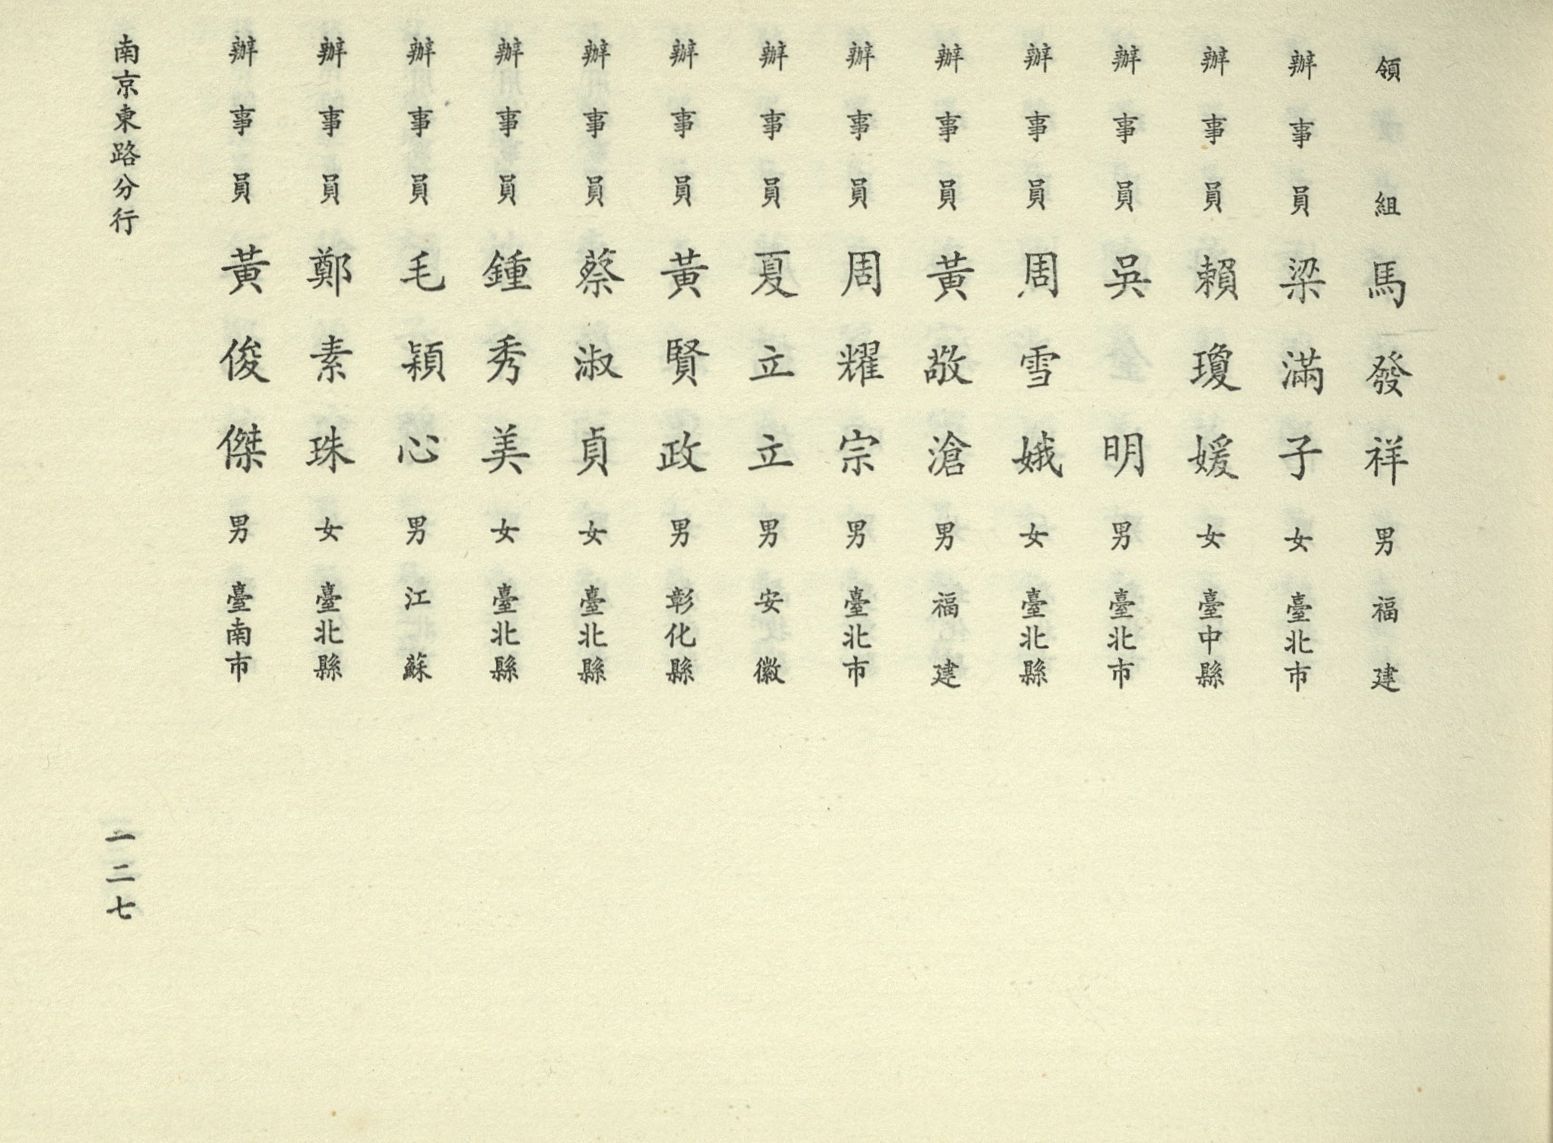 領組馬發祥男福建
辦事員梁滿子女臺北市
辦事員賴瓊媛女臺中縣
辦事員吳明男臺北市
辦事員周雪娥女臺北縣
辦事員黃敬滄男福建
辦事員周耀宗男臺北市
辦事員夏立立男安徽
辦事員黃賢政男彰化縣
辦事員蔡淑貞女臺北縣
辦事員鍾秀美女臺北縣
辦事員毛穎心男江蘇
辦事員鄭素珠女臺北縣
辦事員黃俊傑男臺南市
南京東路分行
一二七